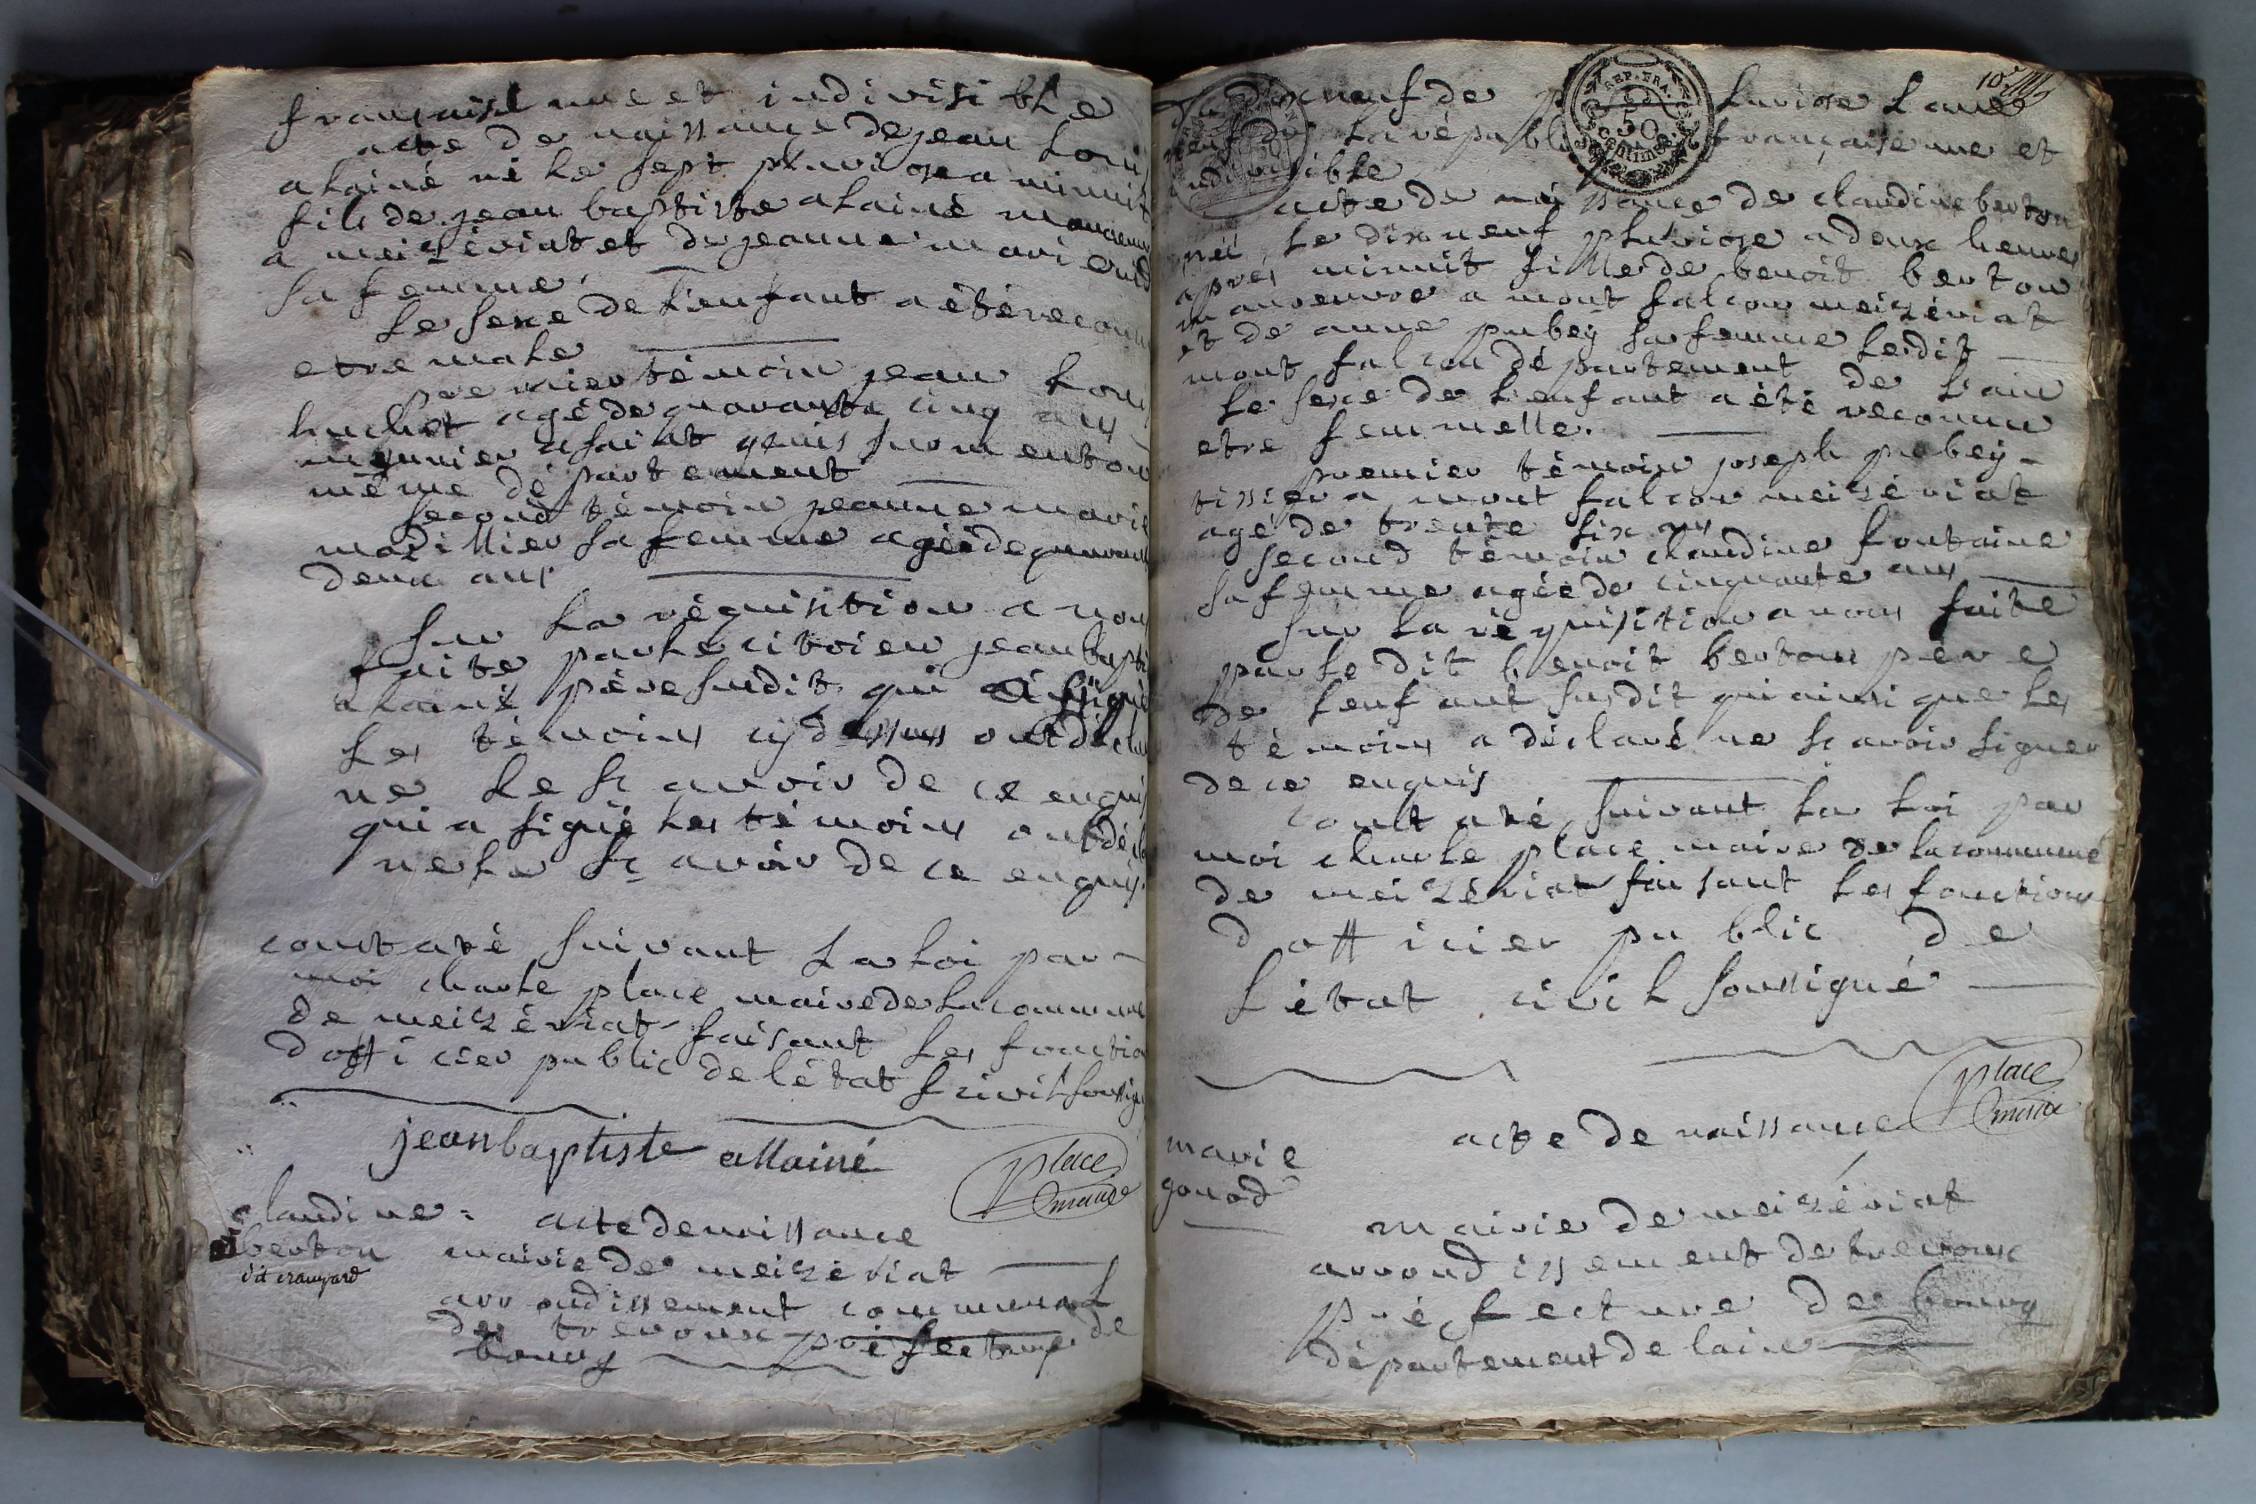 française une et indivisible
acte de naissance de jean loui
alainé né le sept pluviose a minuit
fils de jean baptiste alainé manoeuv
a meizériat et de jeanne mari
sa femme.
le sexe de l'enfant a été reconu
etre male
premier témoin jean loui
huchet agé de quarante cinq ans
meunier a saint genis sur menton
même département
second témoin jeanne marie
mazillier sa femme agée de quarant
deux ans
sur la réquisition a nou
faite par le citoien jean bapti
alainé père susdit qui a signé
les témoins cydessus ont décla
ne le sçavoir de ce enquis
qui a signé les témoins ont décla
ne la sçavoir de ce enquis.
constaté suivant la loi par
moi charle place maire de la commune
de meizériat faisant les fonction
dofficier public de létat civil soussigne
jean baptiste allainé
Place
maire
claudine
berton
dit cranyard
acte de naissance
mairie de meizériat
arrondissement communal
de trevoux préfecture de
bourg
10
REP. FRA.
50
centimes
du dix neuf de pluviose l'anné
neuf de la républi française une et
indivisible
acte de naissance de claudine berton
néé le dix neuf pluviose a deux heures
apres minuit fille de benoit berton
manoeuvre a mont falcon meizériat
et de anne pubey sa femme ledit
mont falcon département de l'ain
le sexe de l'enfant a été reconnu
etre femmelle.
premier témoin joseph pubey
tissier a mont falcon meizériat
agé de trente six ans
second témoin claudine fontaine
sa femme agée de cinquante ans
sur la réquisition a nous faite
par le dit benoit berton père
de lenfant susdit qui ainsi que les
témoins a déclaré ne sçavoir signer
de ce enquis
constaté suivant la loi par
moi charle place maire de la commune
de meizériat faisant les fonctions
dofficier public de
létat civil soussigné
Place
maire
marie
gonod
acte de naissance
mairie de meizériat
arrondissement de trevoux
préfecture de bourg
département de lain